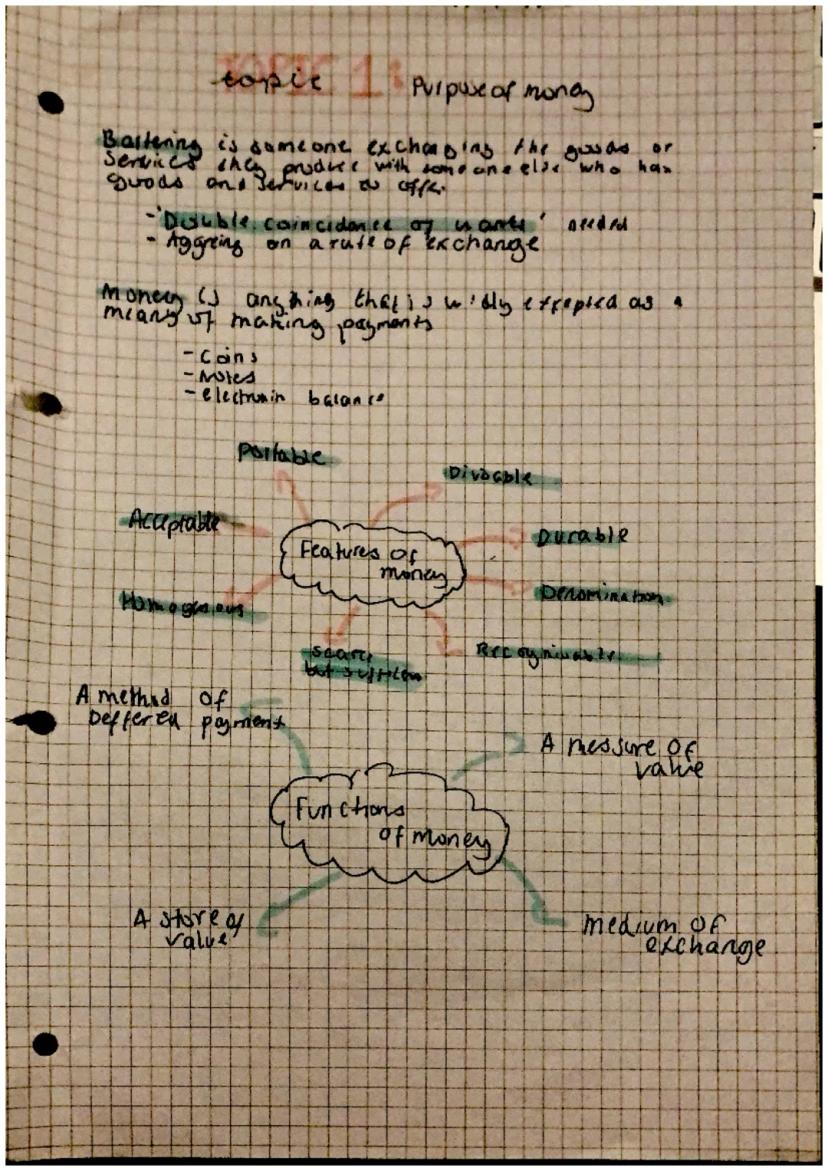 TOPIC 1:
topic Purpose of money
Bartering is someone exchanging the goods or
services they produce with someone else who has
goods and services to offer
- 'Double coincidance of wants' needed
- Aggreing on a rate of exchange
Money is anything that is widly excepted as a
means of making payments
- Coins
- Notes
- electronin balance
Portable
Divocable
Acceptable
Durable
Features of
money
Denomination
Homogenous
Scarce
but sufficen
Recognisable
A method of
Deffered payment
A messure of
value
Functions
of money
A store of
value
medium of
exchange